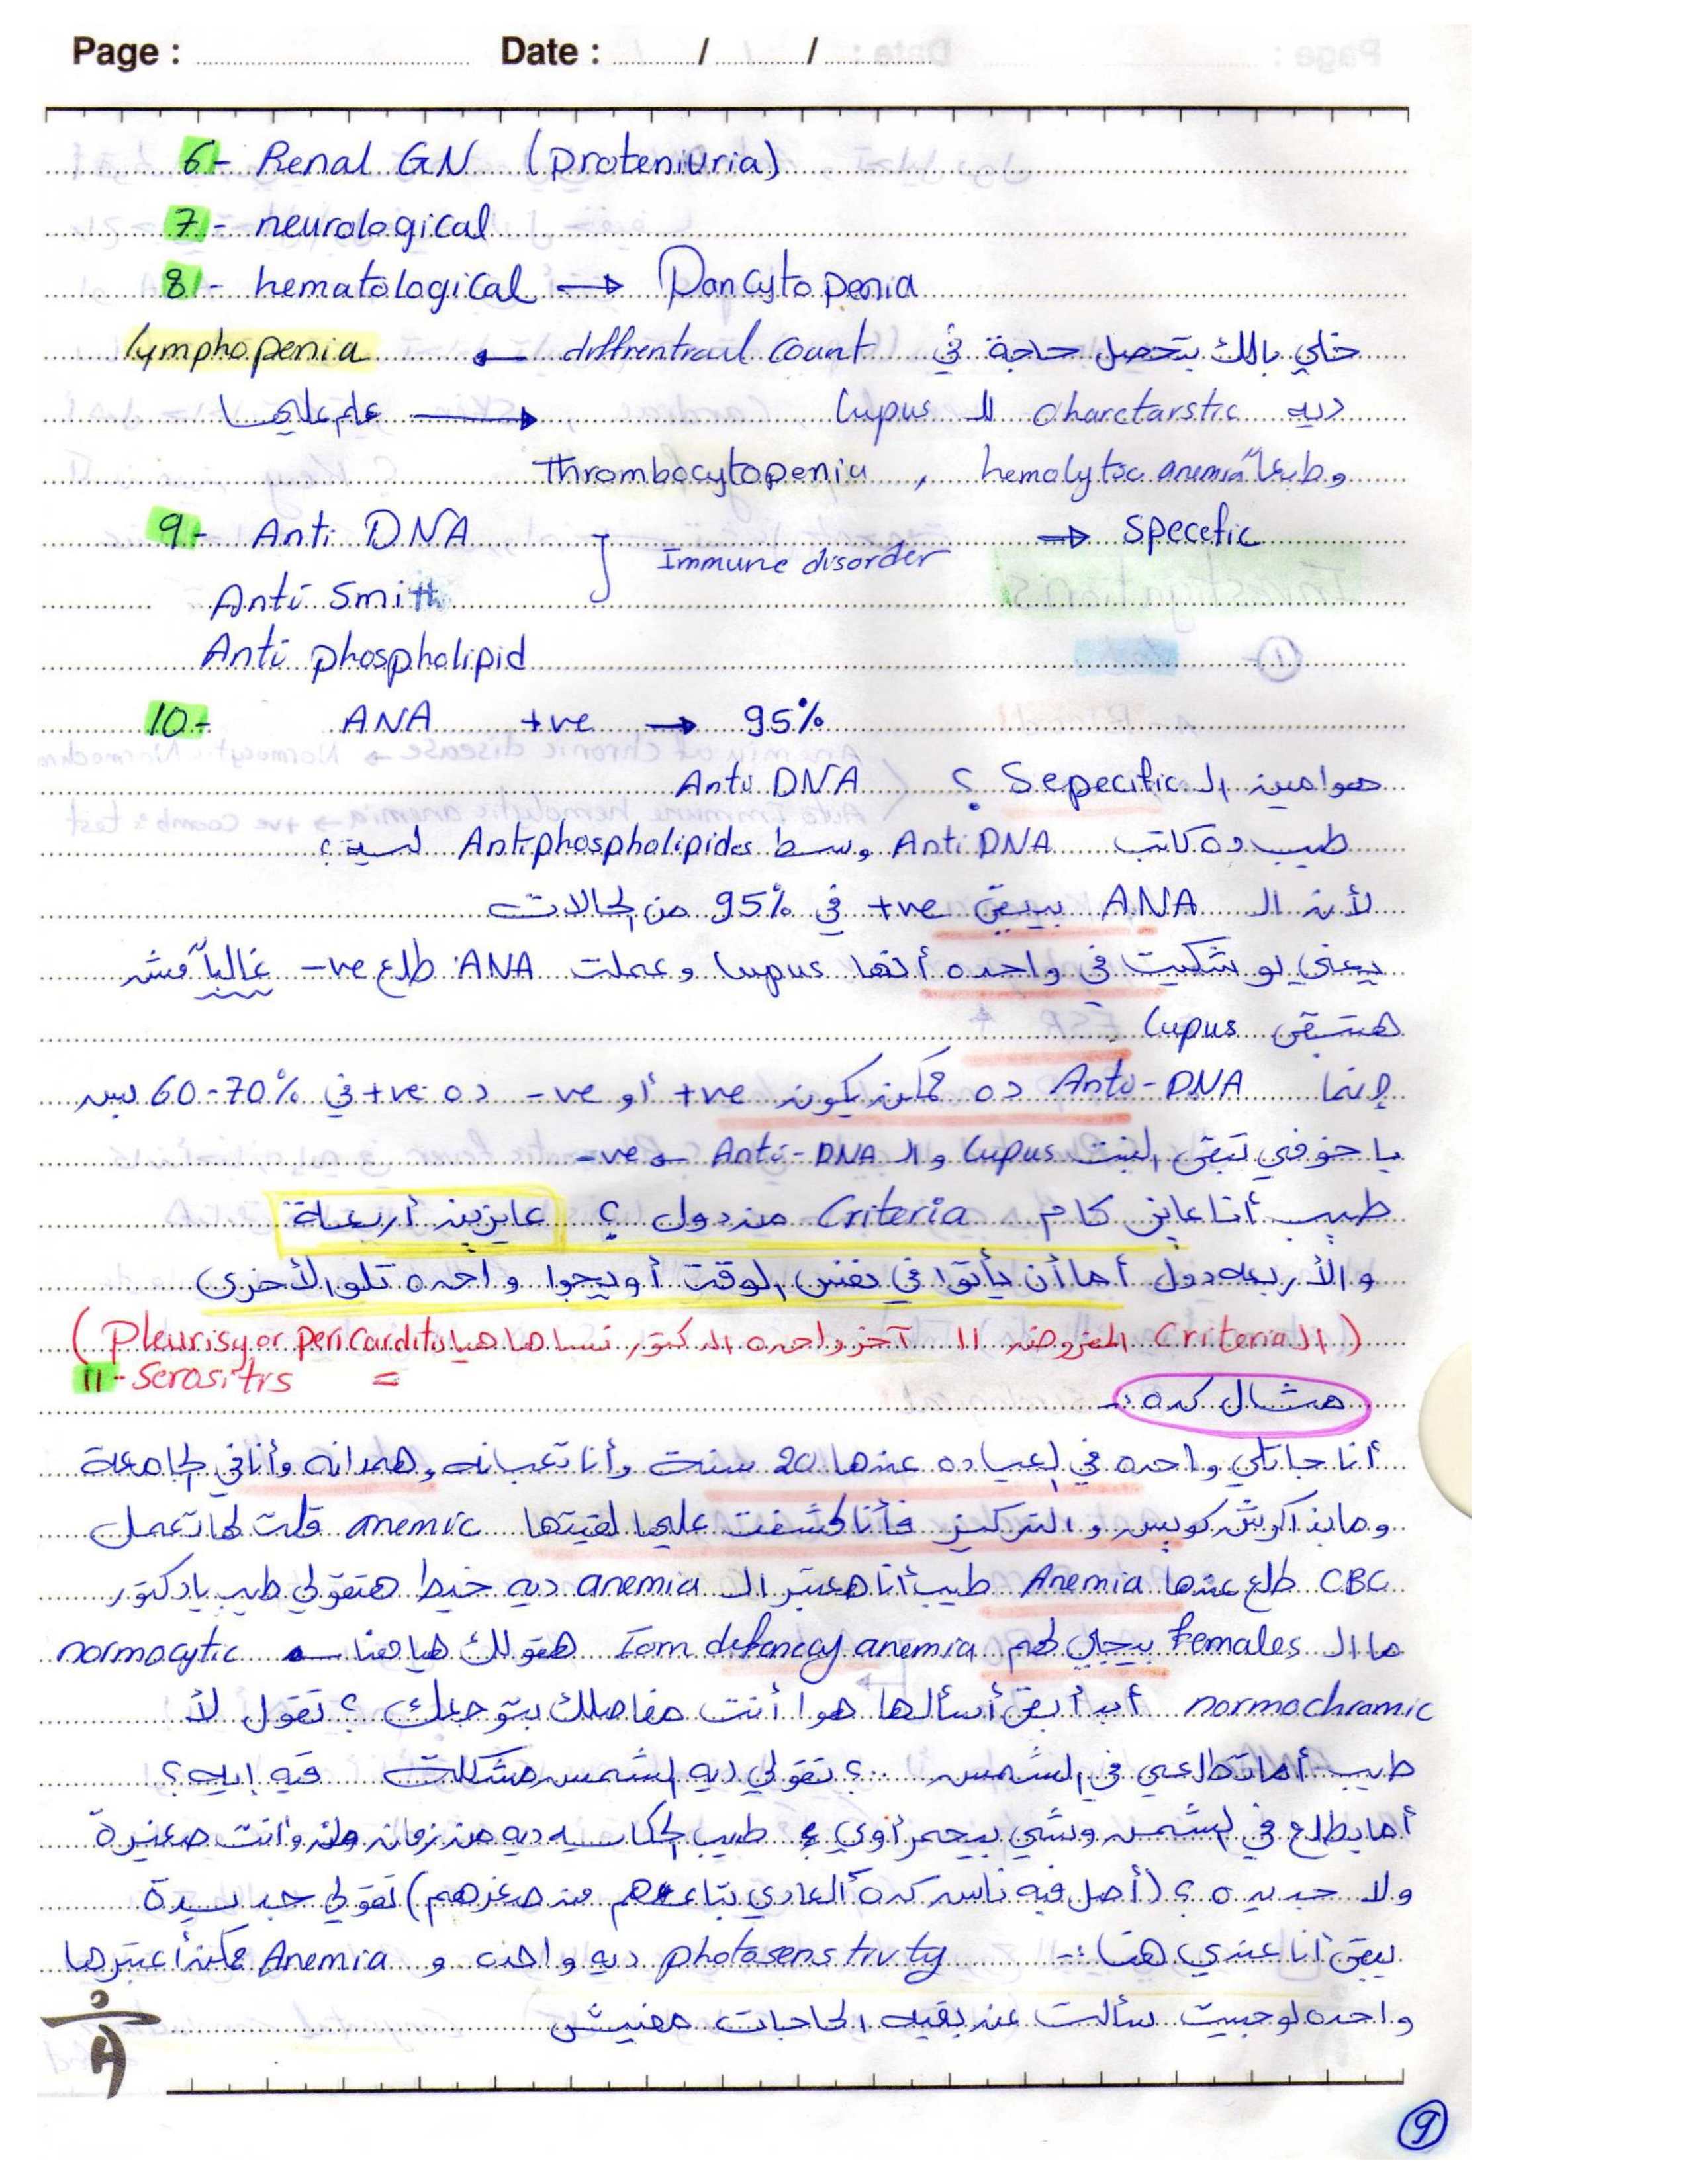 Page : Date : / /
6- Renal GN (proteniuria)
7- neurological
8- hematological → Pancytopenia
خلي بالك بتحصل حاجة في diffrentioal count ← lymphopenia
ديه charctarstic لل lupus → علم عليها
وطبعاً hemolytic anemia , Thrombocytopenia
9- Anti DNA } Immune disorder → specefic
Anti Smith
Anti phospholipid
10- ANA +ve → 95%
هوا مين ال Sepecific ؟ Anti DNA
طيب ده كاتب Anti DNA وسط Antiphospholipides ليه ؟
لأن ال ANA بيبقى +ve في 95% من الحالات
يعني لو شكيت في واحده أنها lupus وعملت ANA طلع -ve غالباً مش
هتبقى lupus
إنما Anti-DNA ده ممكن يكون +ve أو -ve ده +ve في 60-70% بس
يا خوفي تبقى البنت lupus وال Anti-DNA ← -ve
طيب أنا عايز كام Criteria من دول ؟ عايزين أربعة
والأربعه دول أما أن يأتوا في نفس الوقت أو ييجوا واحده تلو الأخرى
( ال Criteria المفروض 11 آخر واحده الدكتور نساها هيا Pleurisy or pericarditis )
11- Serositis =
مثال كده :-
أنا جاتلي واحده في العياده عندها 20 سنة وأنا تعبانه وهمدانه وأنا في الجامعة
ومابذاكرش كويس والتركيز فأنا كشفت عليها لقيتها anemic قلت لها تعمل
CBC طلع عندها Anemia طيب أنا هعتبر ال anemia ديه خيط هتقولي طيب يا دكتور
ما ال females بيجي لهم Iorn defiency anemia هقولك هيا هنا ← normocytic
normochromic أبدأ بقى أسألها هوا أنت مفاصلك بتوجعك ؟ تقول لأ
طيب أما تطلعي في الشمس ..؟ تقولي ديه الشمس مشكلة فيه ايه ؟
أما بطلع في الشمس وشي بيحمر أوي ؟ طيب الحكايه ديه من زمان وانت صغيرة
ولا جديده ؟ (أصل فيه ناس كده العادي بتاعهم من صغرهم) تقولي جديدة
يبقى أنا عندي هنا :- photosenstivty ديه واحده و Anemia ممكن أعتبرها
واحده لو جيت سألت عن بقيه الحاجات مفيش
9